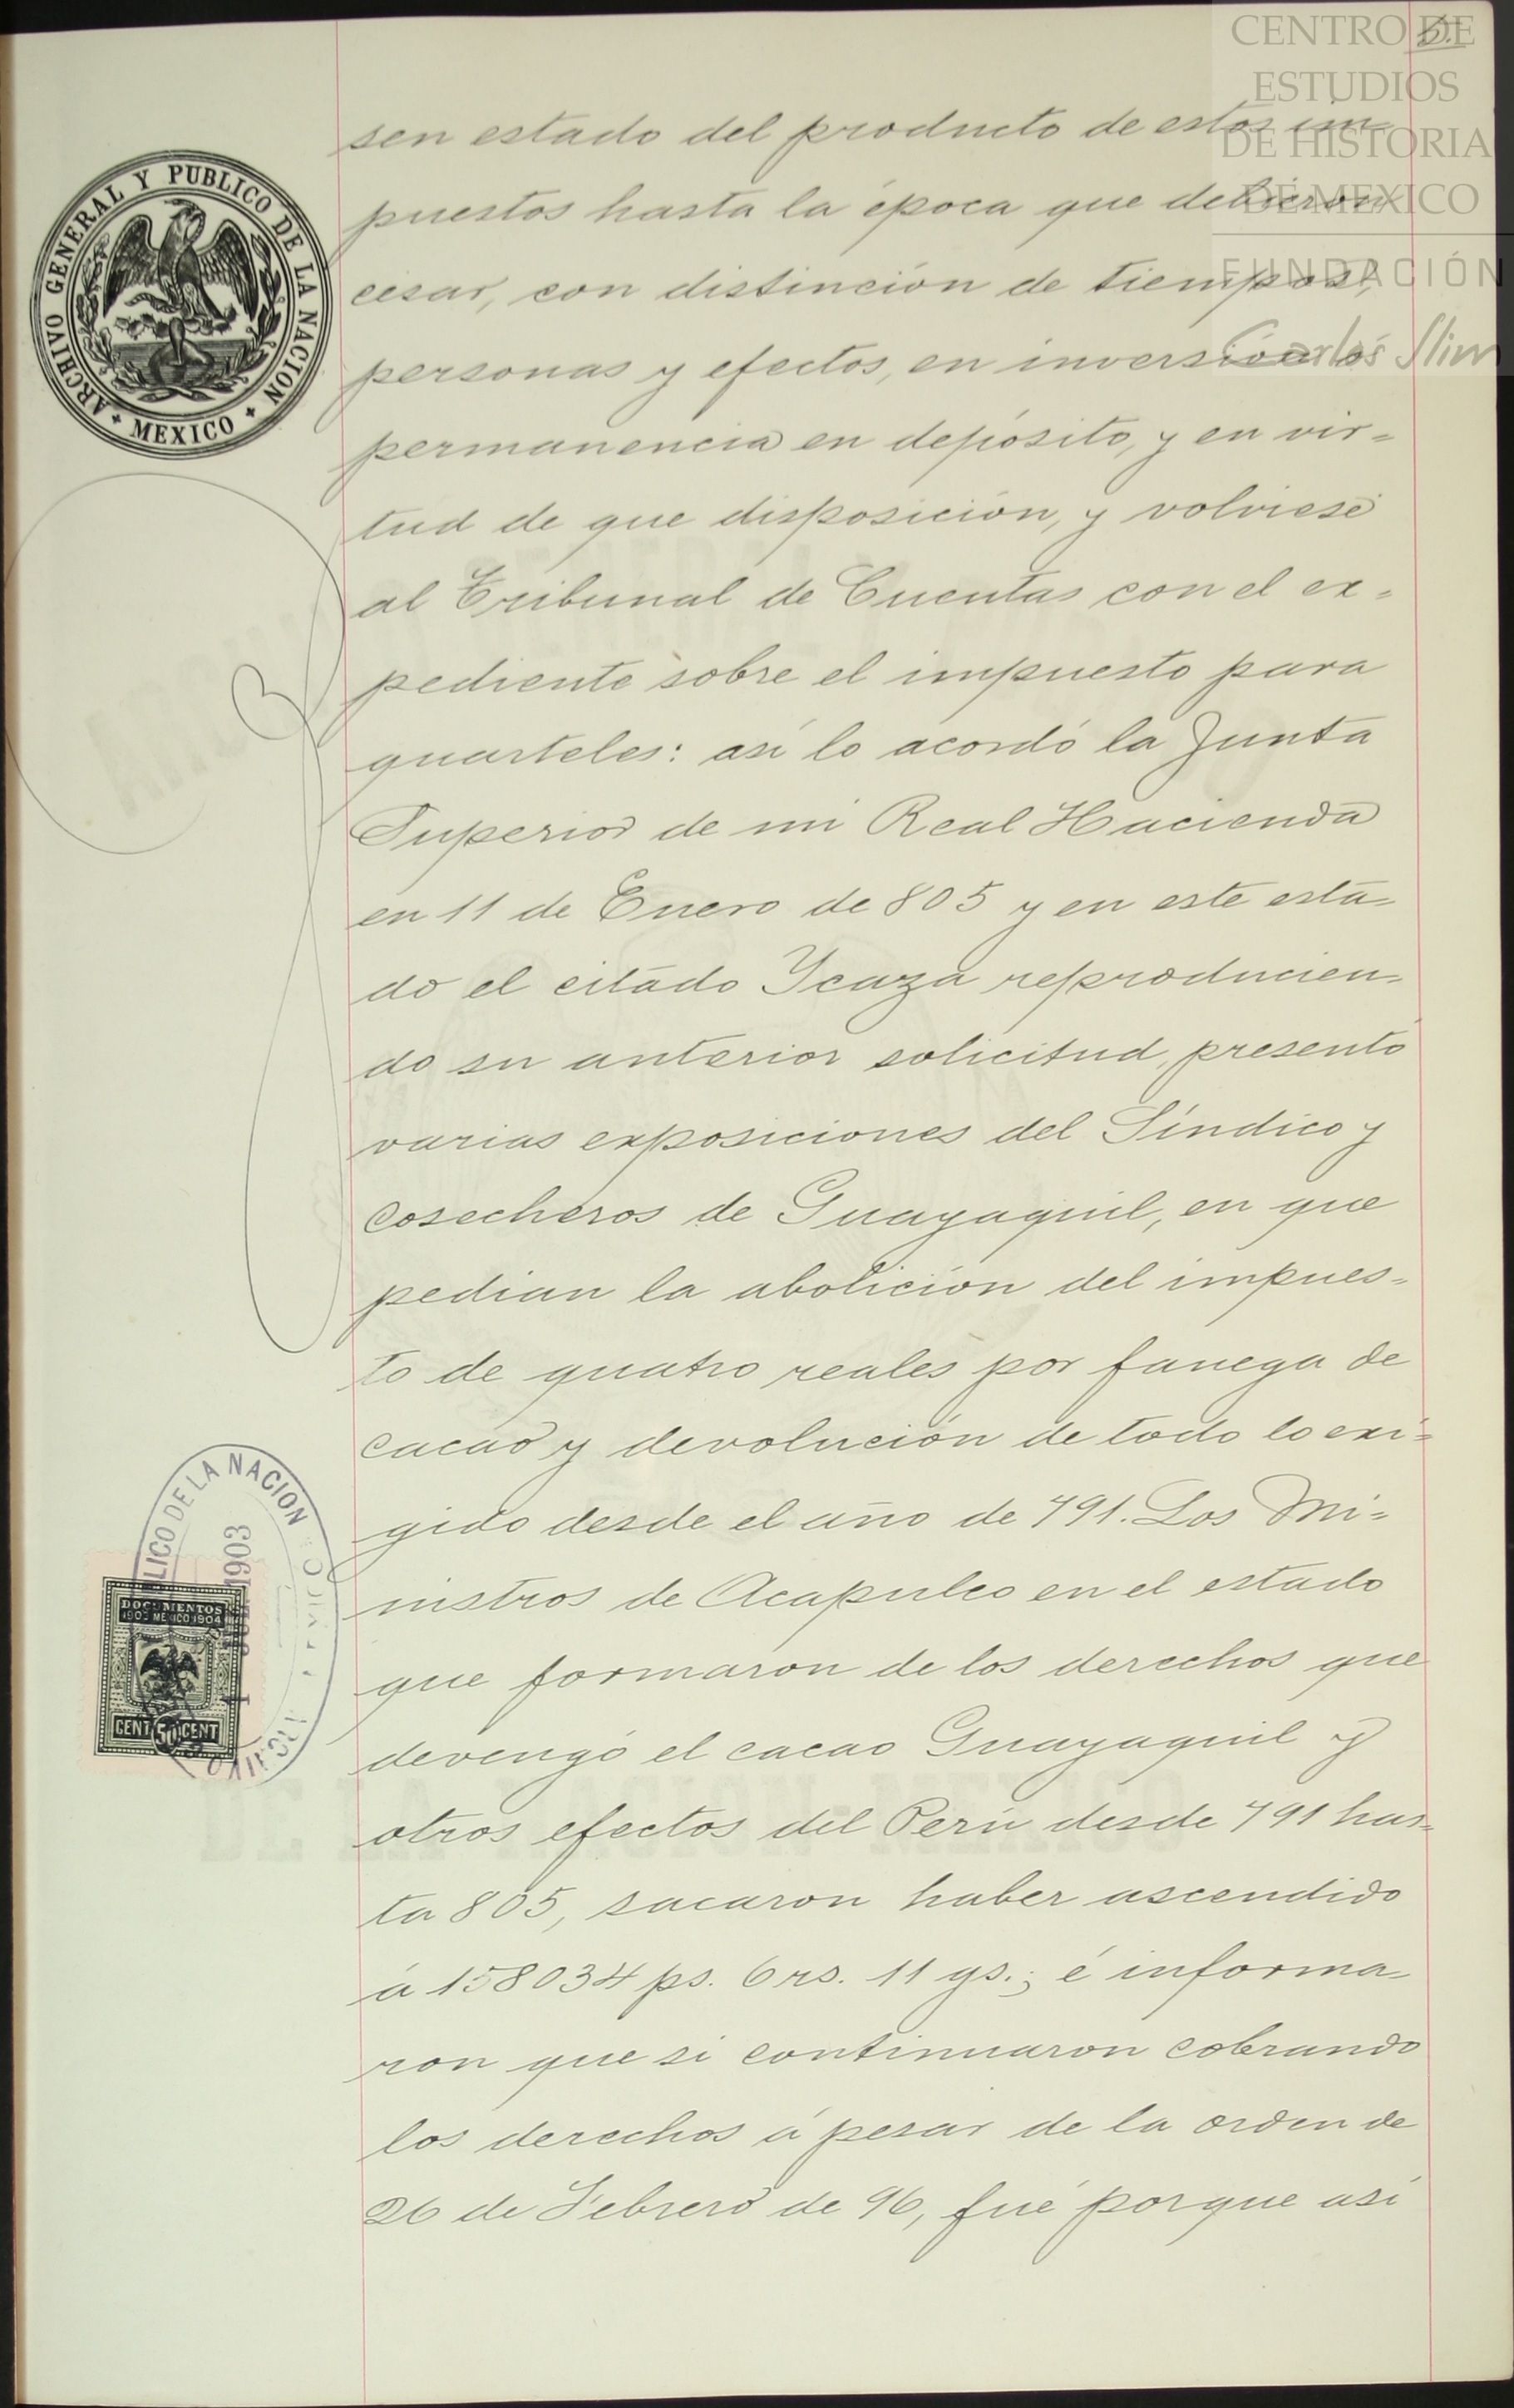 CENTRO DE
ESTUDIOS
DE HISTORIA
DE MEXICO
FUNDACIÓN
Carlos Slim
5.
sen estado del producto de estos im-
puestos hasta la época que debieron
cesar, con distinción de tiempos,
personas y efectos, en inversión ó
permanencia en depósito, y en vir=
tud de que disposición, y volviese
al Tribunal de Cuentas con el ex=
pediente sobre el impuesto para
quarteles: así lo acordó la Junta
Superior de mi Real Hacienda
en 11 de Enero de 805 y en este esta-
do el citado Ycaza reproducien-
do su anterior solicitud, presentó
varias exposiciones del Síndico y
cosecheros de Guayaquil, en que
pedian la abolición del impues=
to de quatro reales por fanega de
cacao y devolución de todo lo exi=
gido desde el año de 791. Los Mi=
nistros de Acapulco en el estado
que formaron de los derechos que
devengó el cacao Guayaquil y
otros efectos del Perú desde 791 has-
ta 805, sacaron haber ascendido
á 158034 ps. 6 rs. 11 gs.; é informa-
ron que si continuaron cobrando
los derechos á pesar de la orden de
26 de Febrero de 96, fué porque así
ARCHIVO GENERAL Y PUBLICO DE LA NACION
MEXICO
LICO DE LA NACION
1903
DOCUMENTOS
1903 MEXICO 1904
CENT 50 CENT